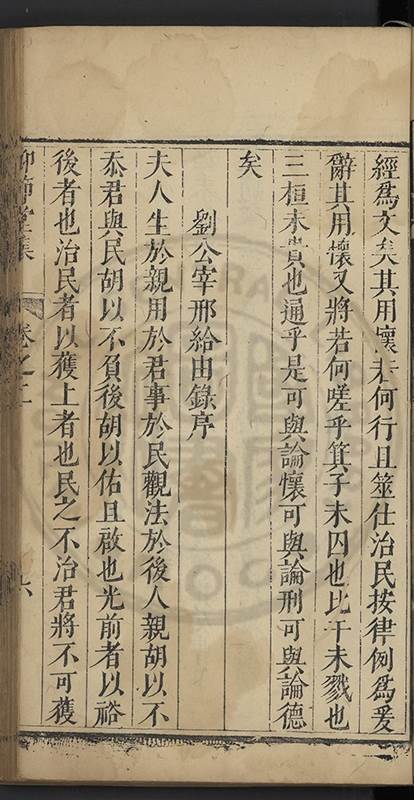 經爲文矣其用懷若何行且筮仕治民按律例爲爰
辭其用懷又將若何嗟乎箕子未囚也比干未戮也
三桓未貴也通乎是可與論懷可與論刑可與論德
矣
劉公宰邢給由錄序
夫人生於親用於君事於民觀法於後人親胡以不
忝君與民胡以不負後胡以佑且啟也光前者以裕
後者也治民者以獲上者也民之不治君將不可獲
堂集
卷之二
六